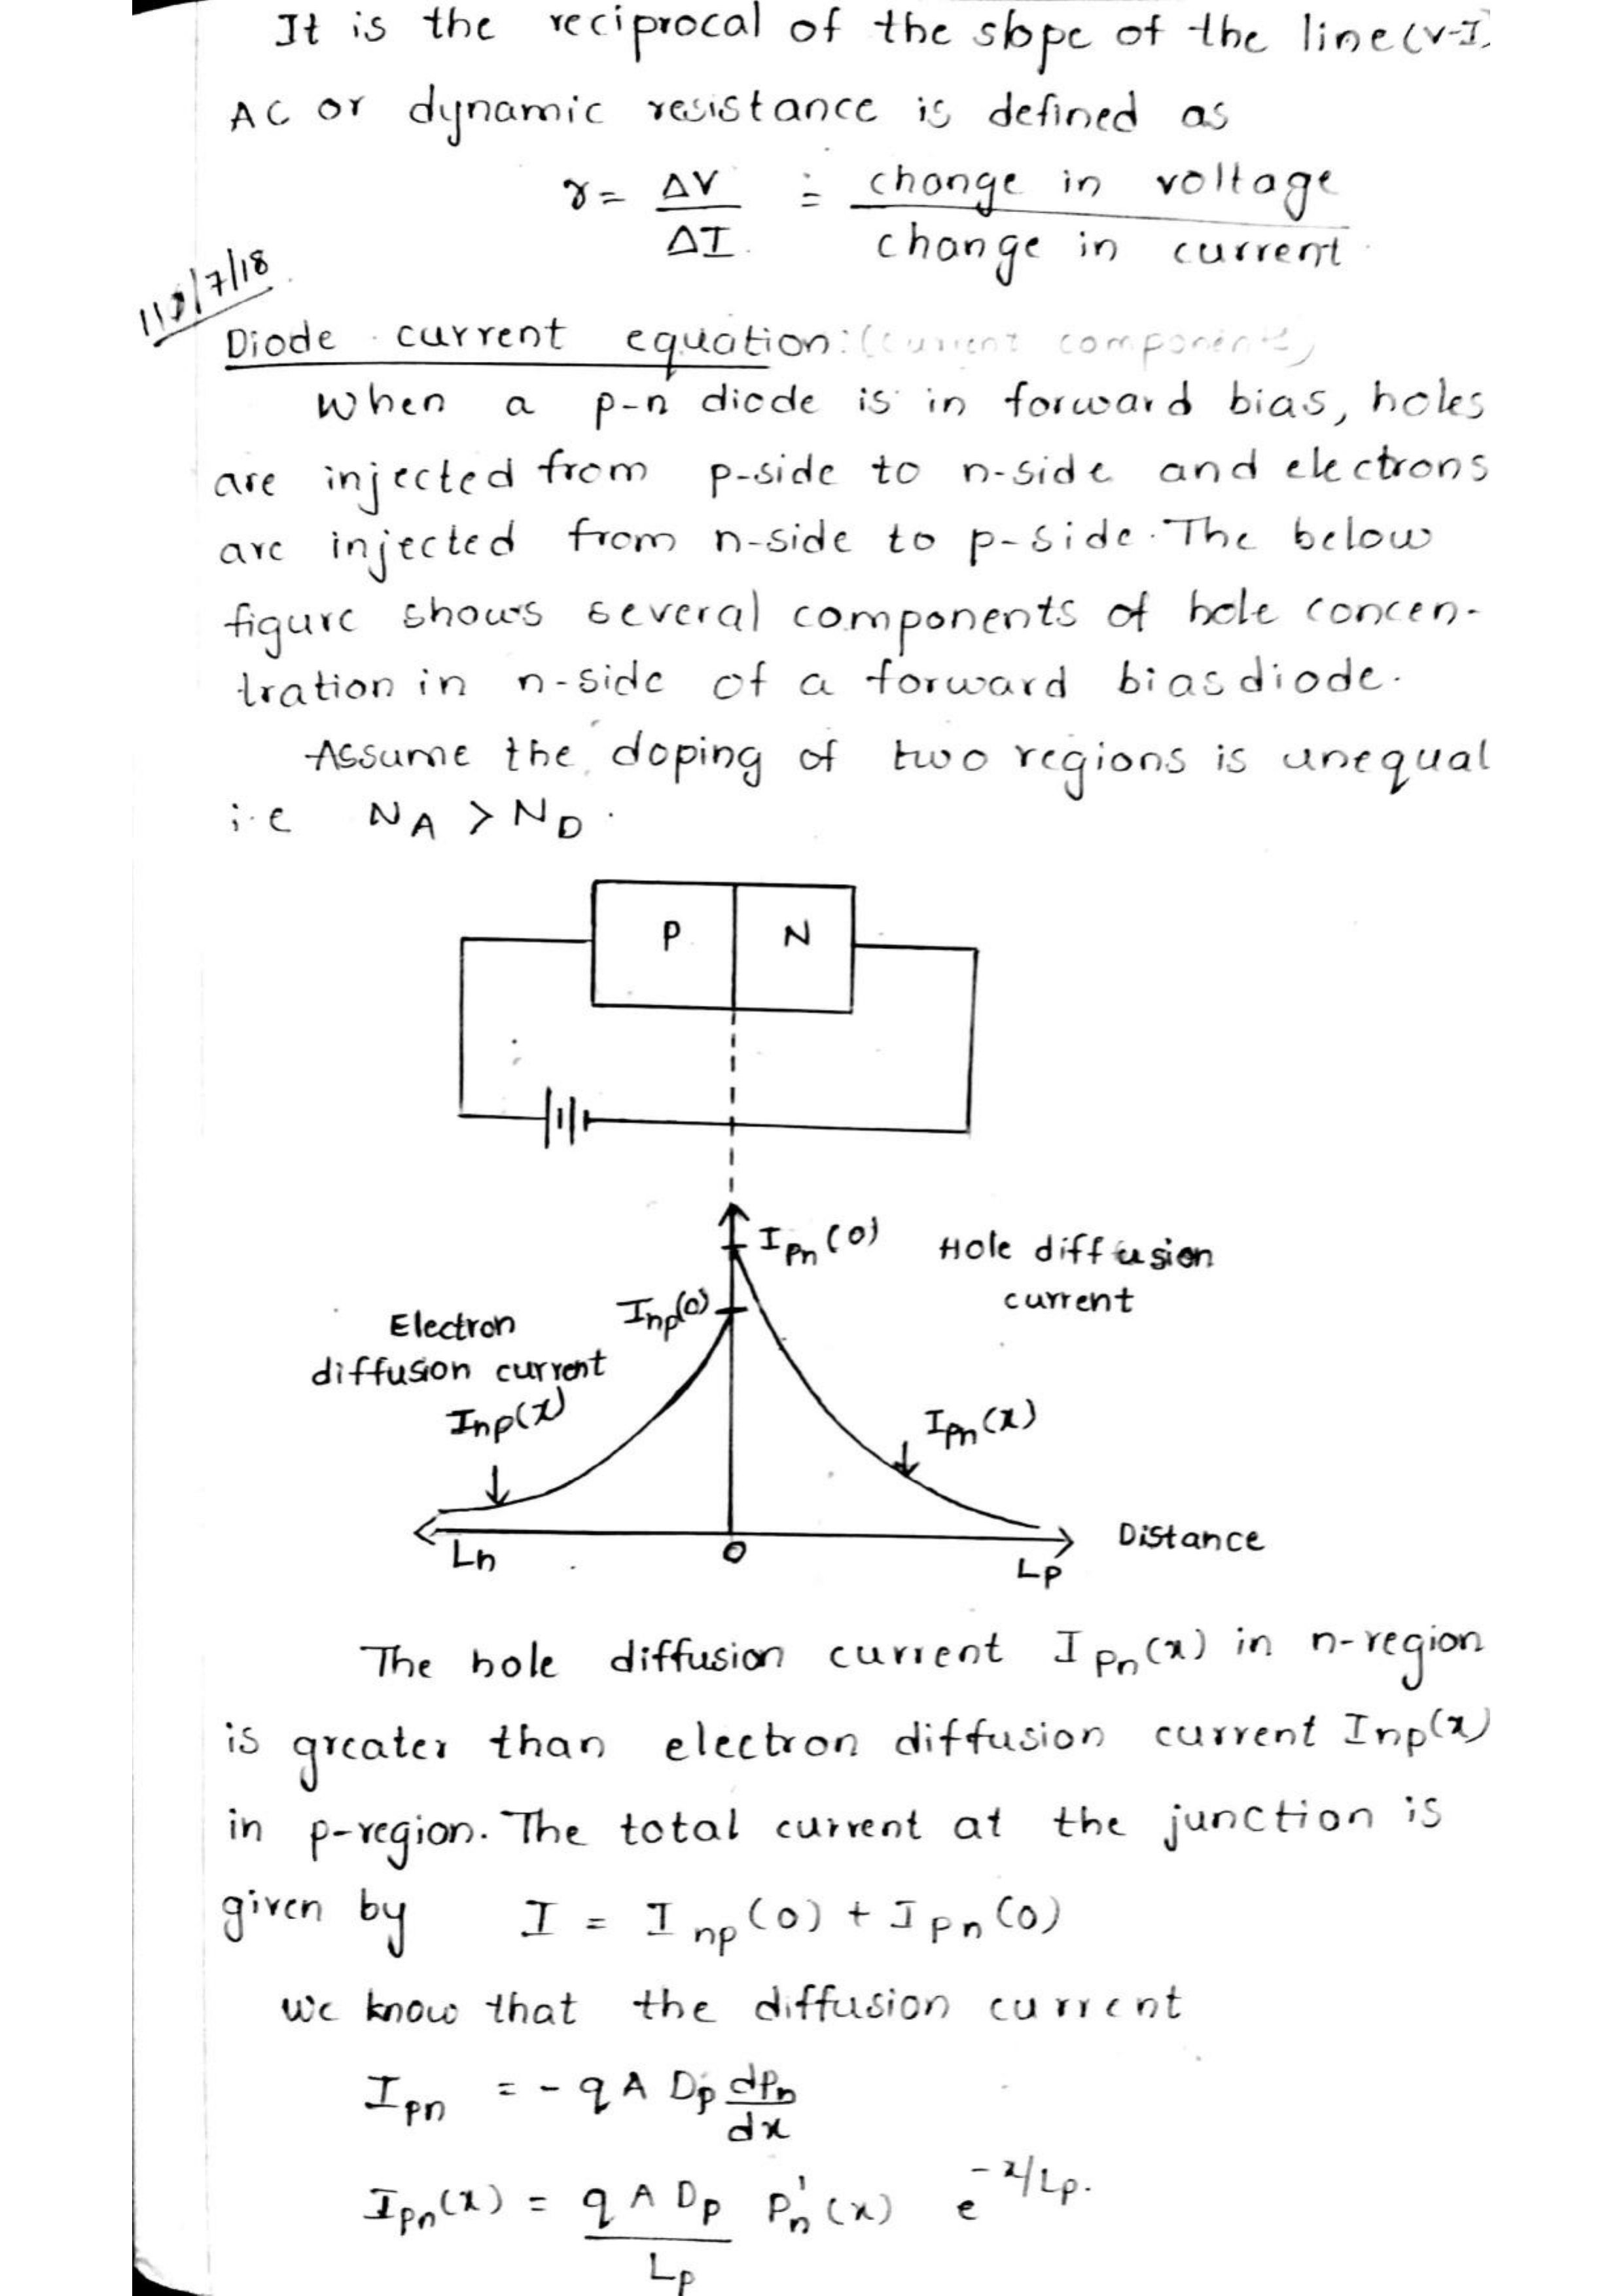 It is the reciprocal of the slope of the line (V-I)
AC or dynamic resistance is defined as
r = ΔV/ΔI = change in voltage/change in current
/7/18
Diode current equation: (current components)
When a p-n diode is in forward bias, holes
are injected from p-side to n-side and electrons
are injected from n-side to p-side. The below
figure shows several components of hole concen-
tration in n-side of a forward bias diode.
Assume the doping of two regions is unequal
i.e NA > ND.
P N
Ipn(0) Hole diffusion
current
Inp(0)
Electron
diffusion current
Inp(x)
Ipn(x)
Distance
Ln 0 Lp
The hole diffusion current Ipn(x) in n-region
is greater than electron diffusion current Inp(x)
in p-region. The total current at the junction is
given by I = Inp(0) + Ipn(0)
we know that the diffusion current
Ipn = - q A Dp dPn/dx
Ipn(x) = q A Dp/Lp Pn'(x) e^-x/Lp.